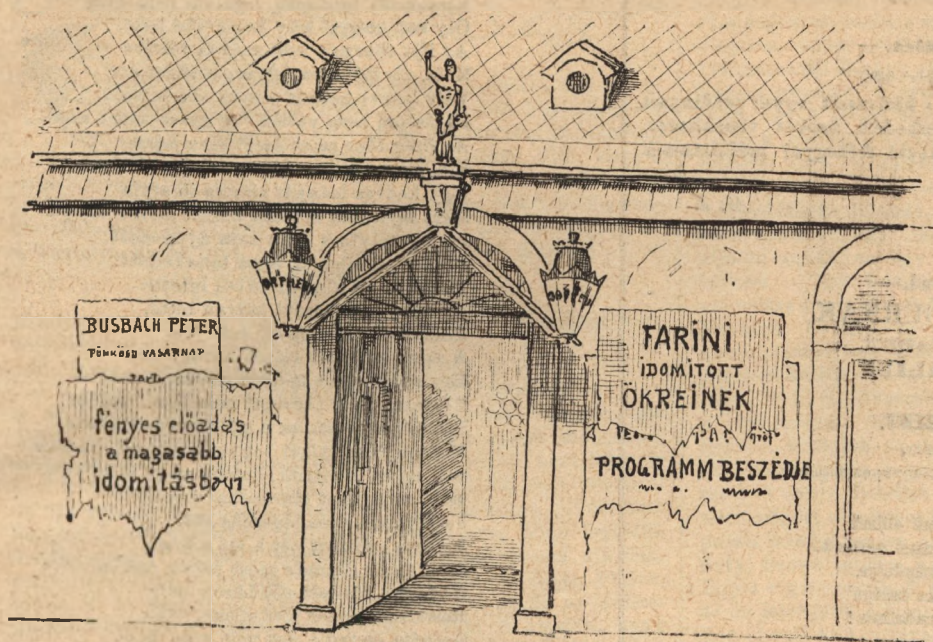 ORFEUM
BUSBACH PÉTER
PÜNKÖSD VASÁRNAP
fényes előadás
a magasabb
idomitásban
FARINI
IDOMÍTOTT
ÖKREINEK
PROGRAMM BESZÉDJE